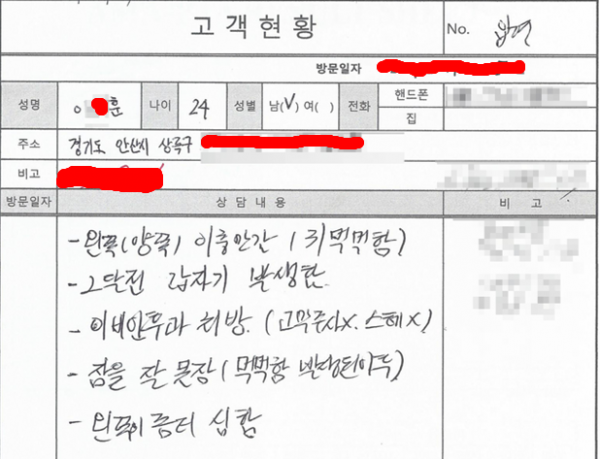 고객현황
No.
방문일자
성명 이 훈 나이 24 성별 남(V) 여( ) 전화 핸드폰
집
주소 경기도 안산시 상록구
비고
방문일자 상담내용 비고
- 왼쪽(양쪽) 이충만감 / 귀먹먹함)
- 2달전 갑자기 발생함
- 이비인후과 처방. (고막주사X. 스테X)
- 잠을 잘 못잠 (먹먹함 발생된이후)
- 왼쪽이 좀더 심함